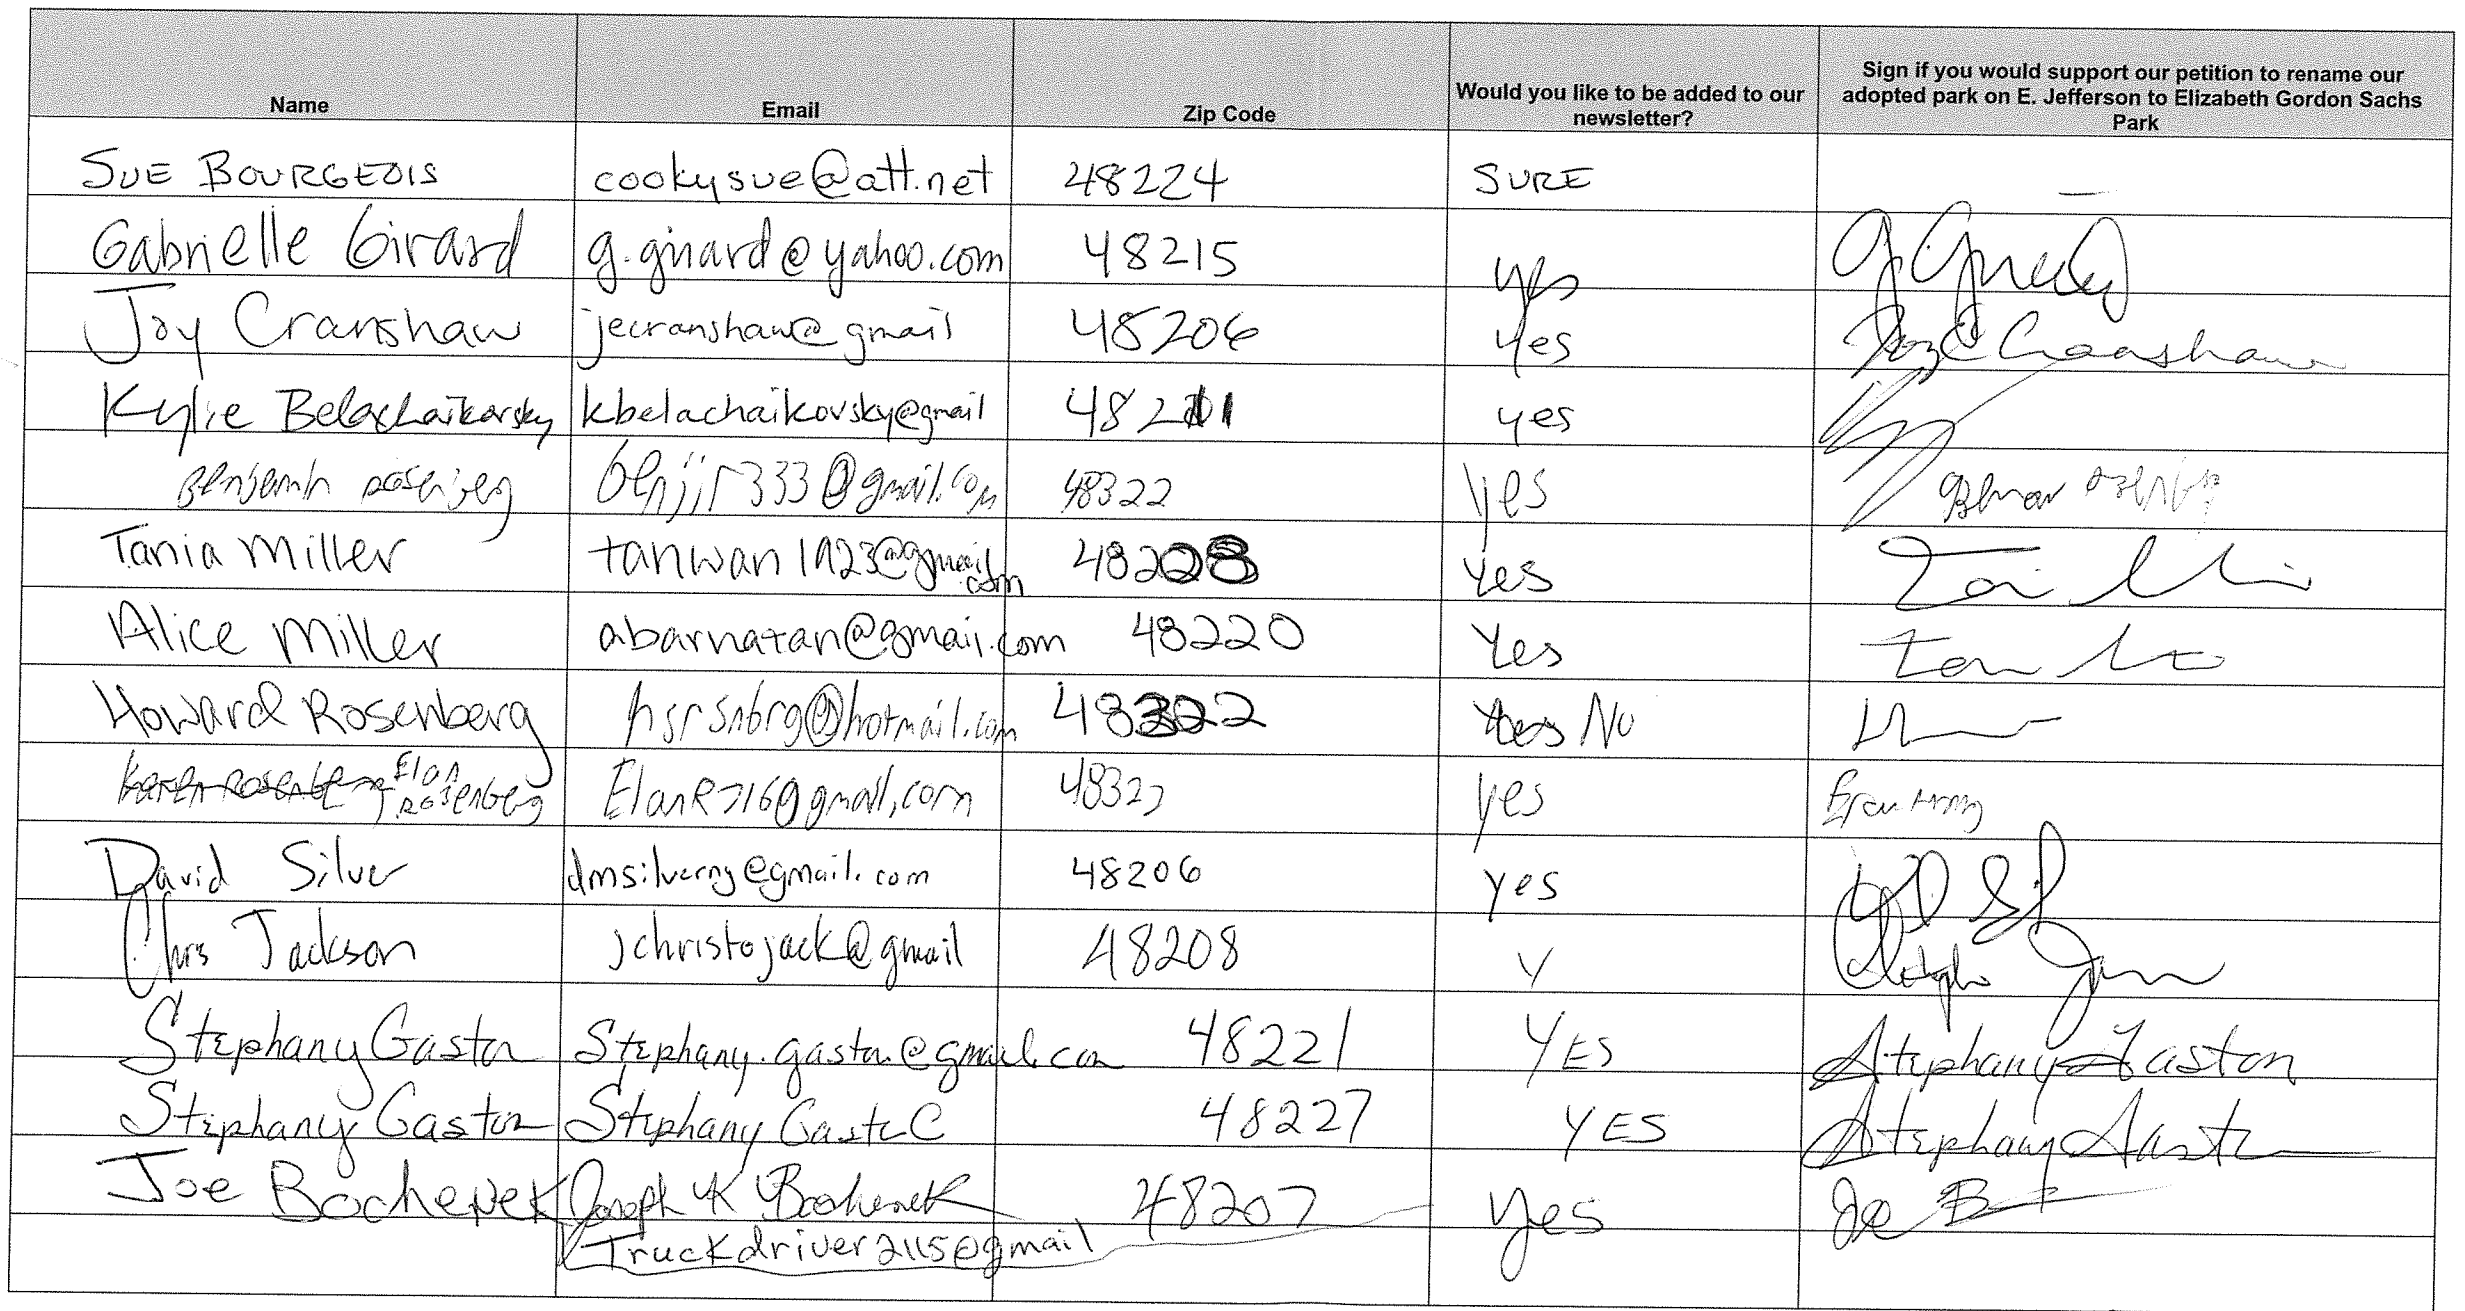 Name Email Zip Code Would you like to be added to our newsletter? Sign if you would support our petition to rename our adopted park on E. Jefferson to Elizabeth Gordon Sachs Park
SUE BOURGEOIS cookysue@att.net 48224 SURE —
Gabrielle Girard g.girard@yahoo.com 48215 yes
Joy Cranshaw jecranshaw@gmail 48206 yes Joy E Cranshaw
Kylie Belachaikovsky kbelachaikovsky@gmail 48211 yes
Benjamin Rosenberg benjir333@gmail.com 48322 yes
Tania Miller tanwan1923@gmail.com 48208 Yes
Alice Miller abarnatan@gmail.com 48220 Yes
Howard Rosenberg hsrsnbrg@hotmail.com 48322 Yes No
Karen Rosenberg Elan Rosenberg ElanR716@gmail.com 48322 yes
David Silver dmsilverny@gmail.com 48206 yes
Chris Jackson jchristojack@gmail 48208 Y
Stephany Gaston Stephany.gaston@gmail.com 48221 YES Stephany Gaston
Stephany Gaston Stephany Gaston C 48227 YES Stephany Gaston
Joe Bochenek Joseph K Bochenek 48207 yes Joe B
Truckdriver2115@gmail